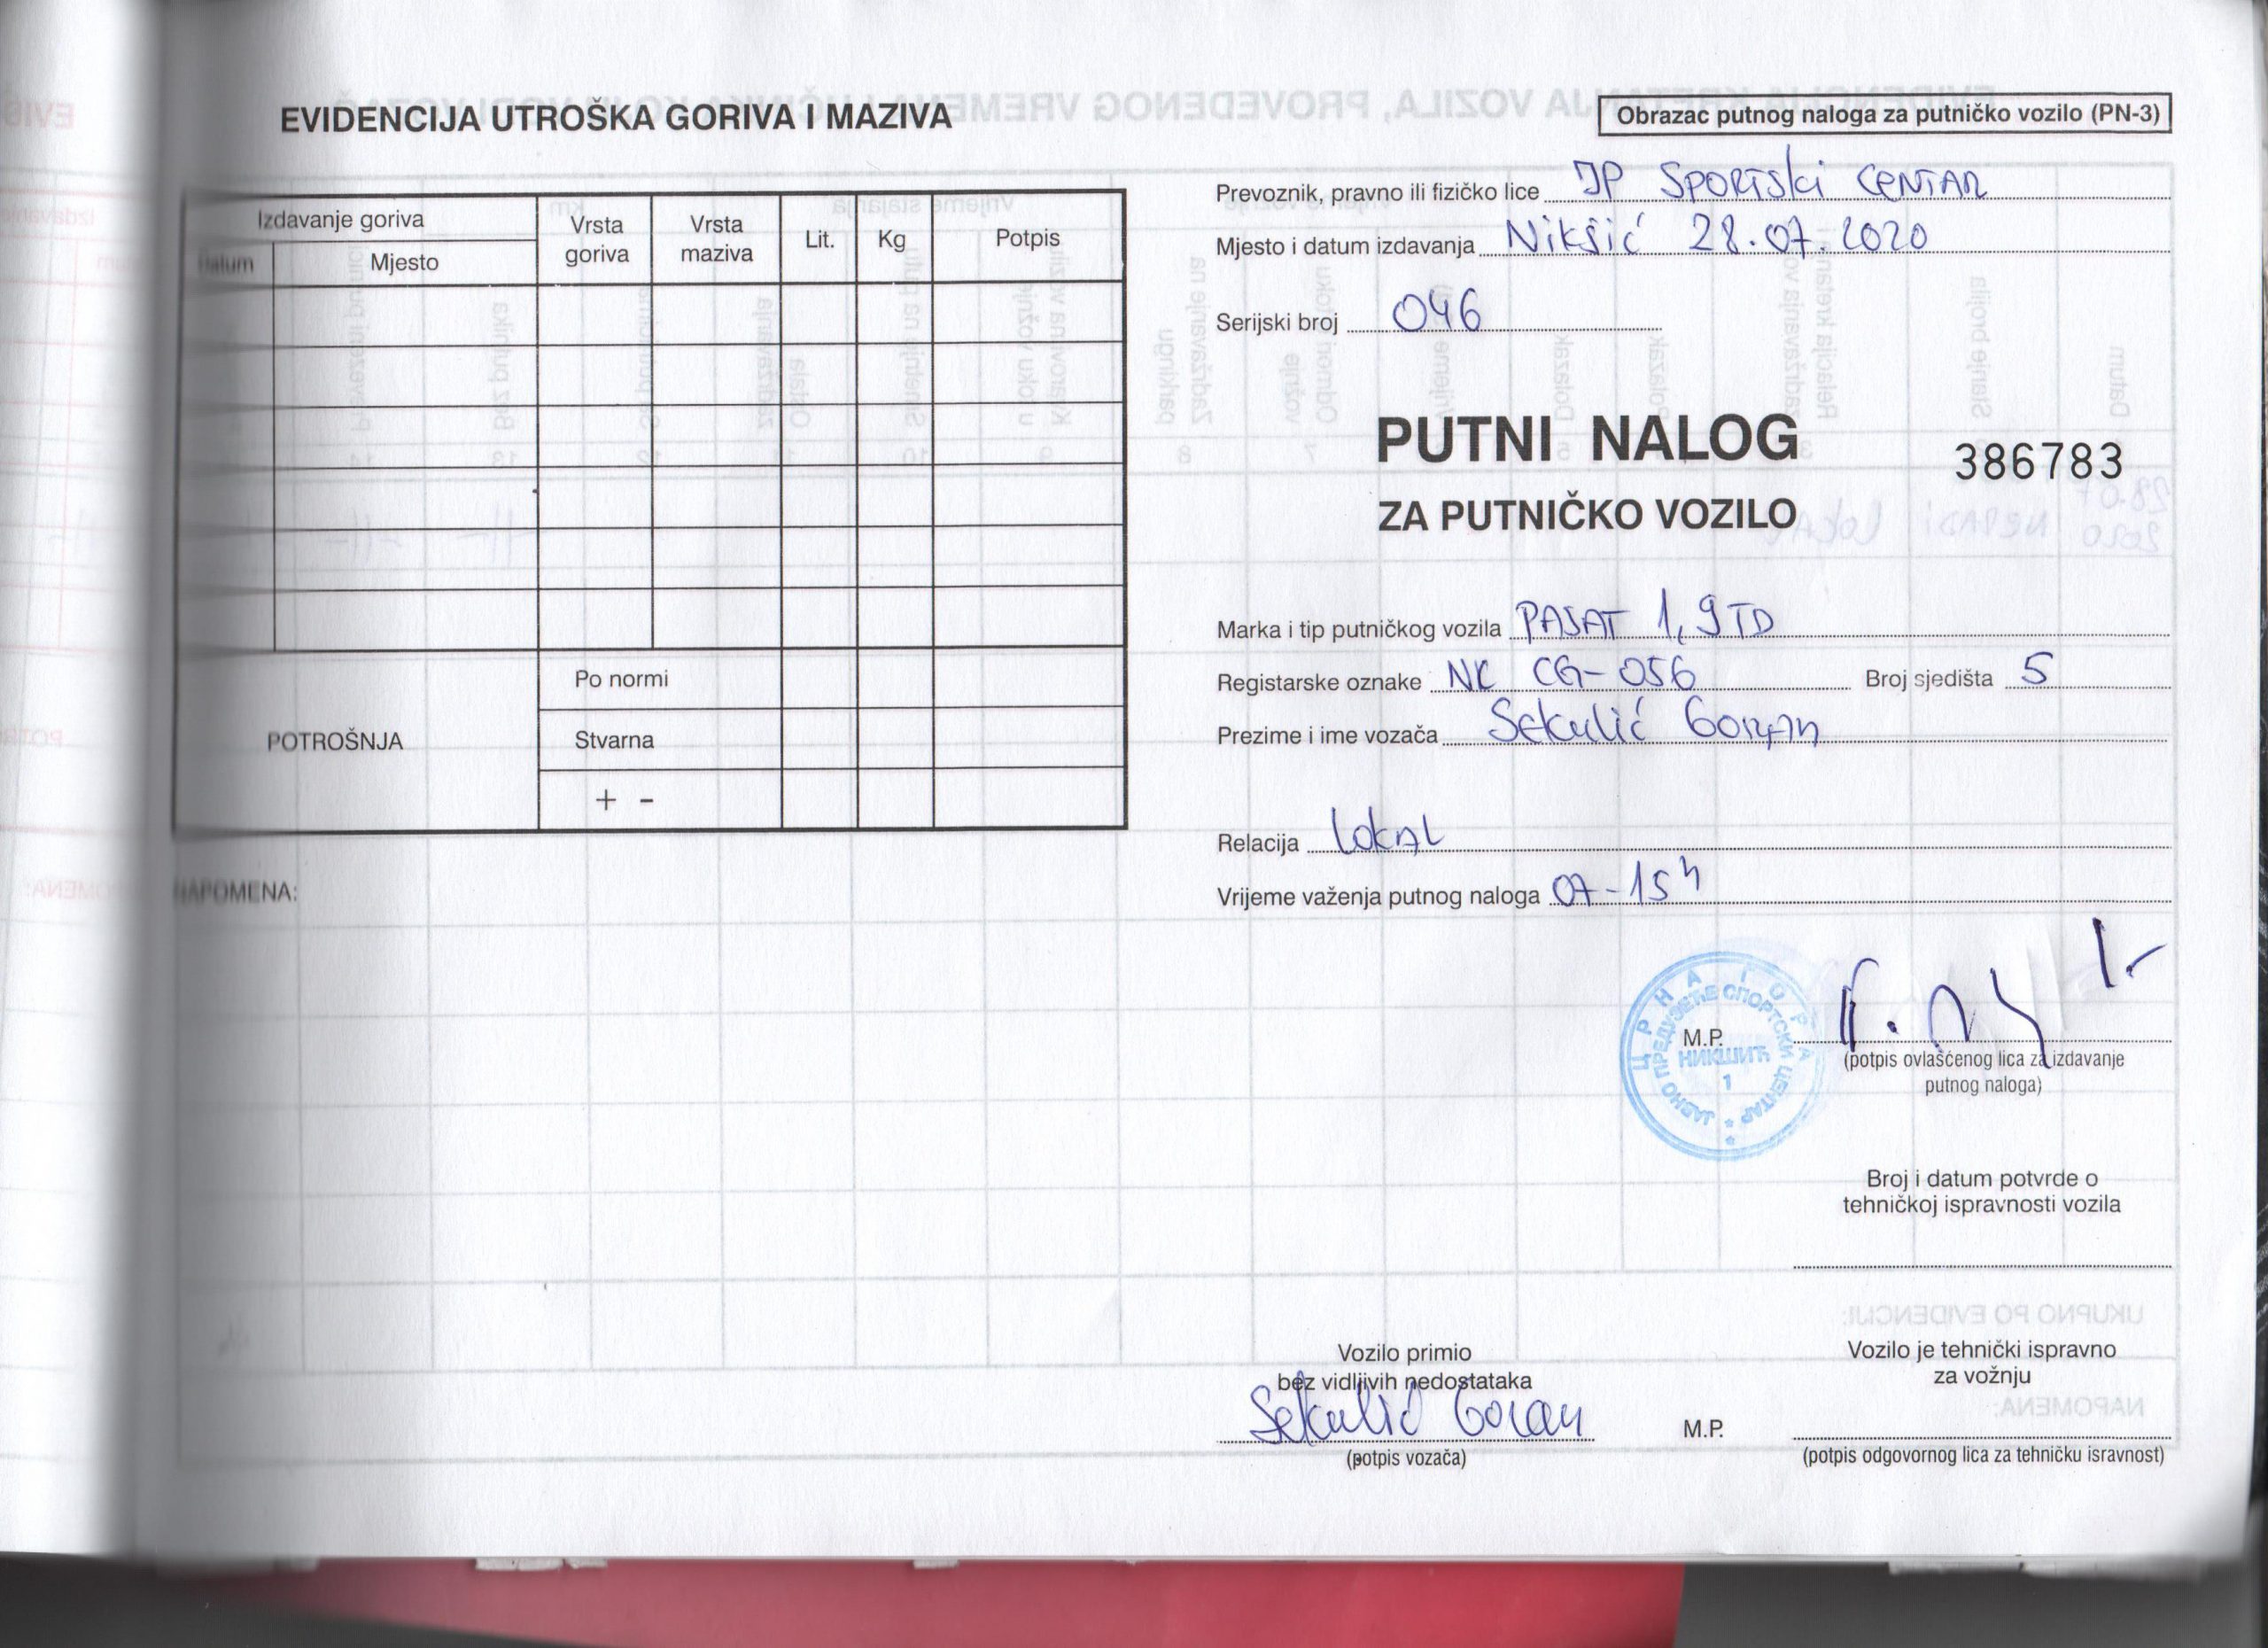 EVIDENCIJA UTROŠKA GORIVA I MAZIVA
Izdavanje goriva
Datum
Mjesto
Vrsta goriva
Vrsta maziva
Lit.
Kg
Potpis
POTROŠNJA
Po normi
Stvarna
+ -
NAPOMENA:
Obrazac putnog naloga za putničko vozilo (PN-3)
Prevoznik, pravno ili fizičko lice JP SPORTSKI CENTAR
Mjesto i datum izdavanja Nikšić 28.07.2020
Serijski broj 046
PUTNI NALOG
386783
ZA PUTNIČKO VOZILO
Marka i tip putničkog vozila PASAT 1,9 TD
Registarske oznake NK CG-056 Broj sjedišta 5
Prezime i ime vozača Sekulić Goran
Relacija LOKAL
Vrijeme važenja putnog naloga 07-15 h
ЦРНА ГОРА
ЈАВНО ПРЕДУЗЕЋЕ СПОРТСКИ ЦЕНТАР
НИКШИЋ
1
M.P.
(potpis ovlašćenog lica za izdavanje
putnog naloga)
Broj i datum potvrde o
tehničkoj ispravnosti vozila
Vozilo primio
bez vidljivih nedostataka
Sekulić Goran
(potpis vozača)
M.P.
Vozilo je tehnički ispravno
za vožnju
(potpis odgovornog lica za tehničku isravnost)